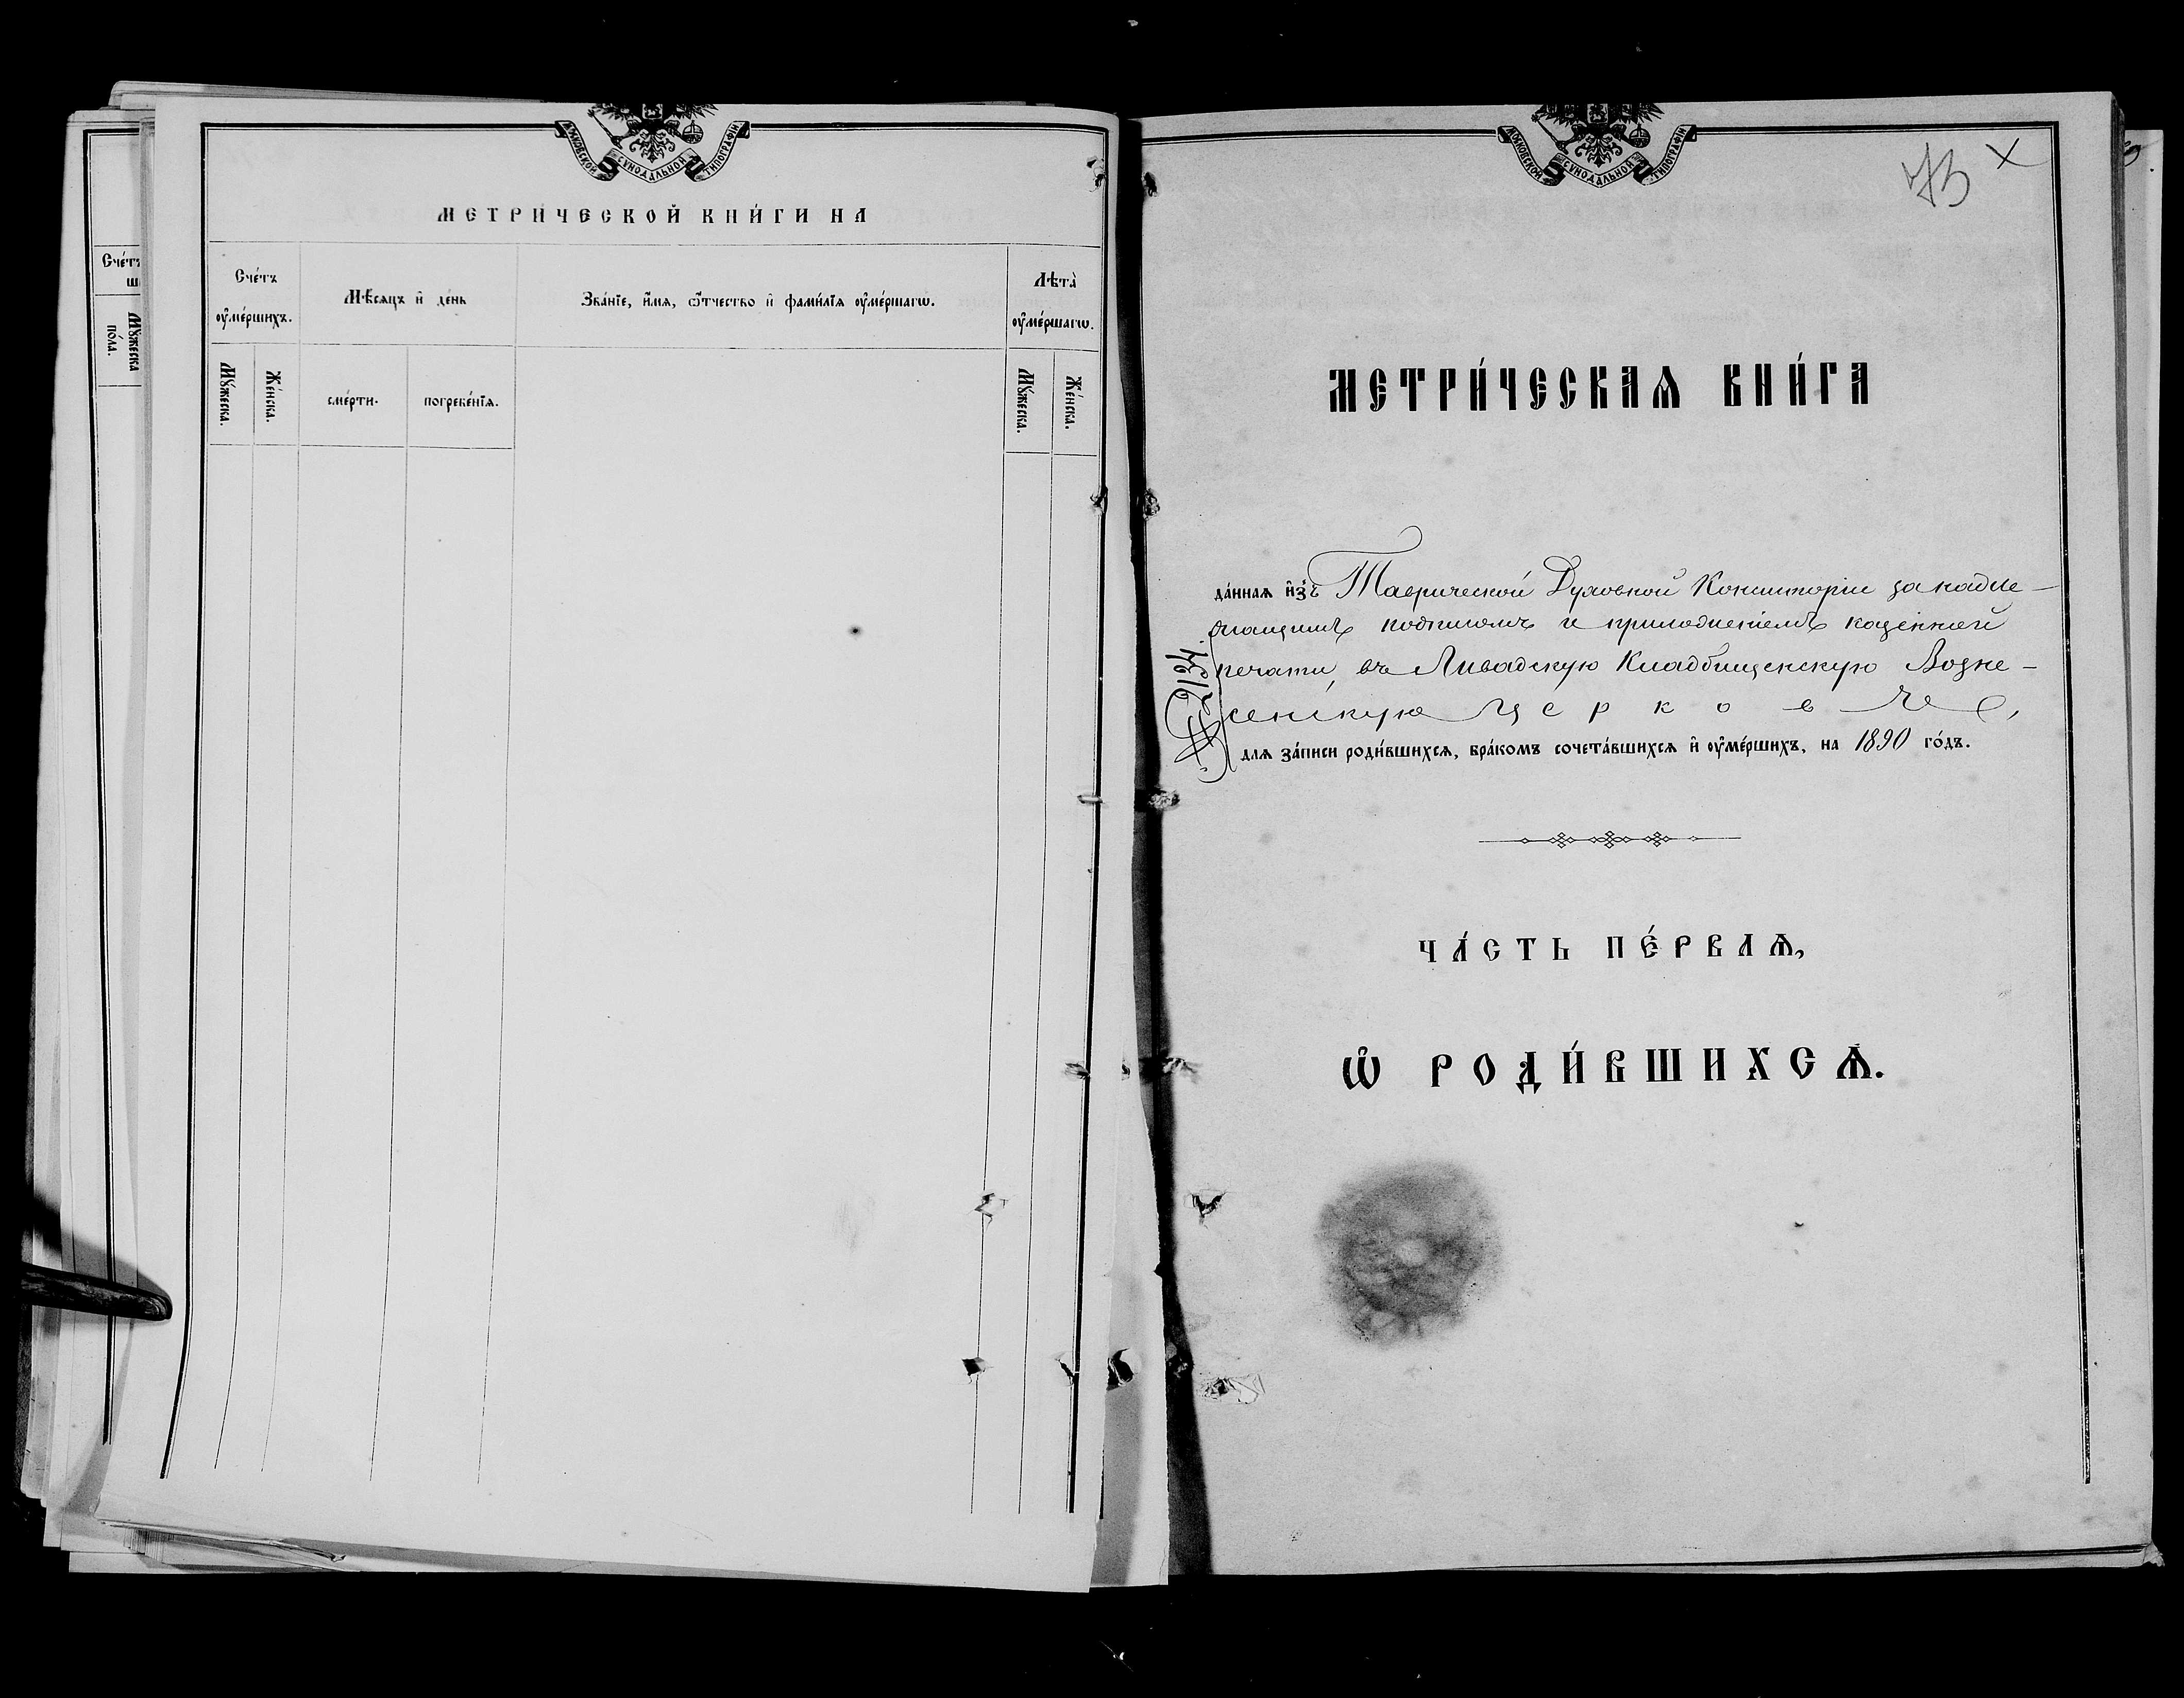 Счétъ
МОСКОВСКОЙ СѴНОДАЛЬНОЙ ТИПОГРАФІИ
МЕТРИ́ЧЕСКОЙ КНИ́ГИ НА
Сче́тъ ᲂу҆ме́ршихъ.
Мѣ́сяцъ и҆ де́нь
Зва́нїе, и҆́мя, ѻ҆́тчество и҆ фами́лїя ᲂу҆ме́ршагѡ.
Лѣта̀ ᲂу҆ме́ршагѡ.
Мꙋ́жеска пóла.
Мꙋ́жеска.
Же́нска.
сме́рти.
погребе́нїѧ.
Мꙋ́жеска.
Же́нска.
МОСКОВСКОЙ СѴНОДАЛЬНОЙ ТИПОГРАФІИ
МЕТРИ́ЧЕСКАѦ КНИ́ГА
да́ннаѧ и҆зъ Таврической Духовной Консисторіи за надле-
жащимъ подписомъ и приложеніемъ казенной
печати, въ Ливадскую Кладбищенскую Возне-
сенскую церковь,
№ 2134
длѧ за́писи роди́вшихсѧ, бра́комъ сочета́вшихсѧ и҆ ᲂу҆ме́ршихъ, на 1890 го́дъ.
ЧА́СТЬ ПЕ́РВАѦ,
Ѡ҆ РОДИ́ВШИХСѦ.